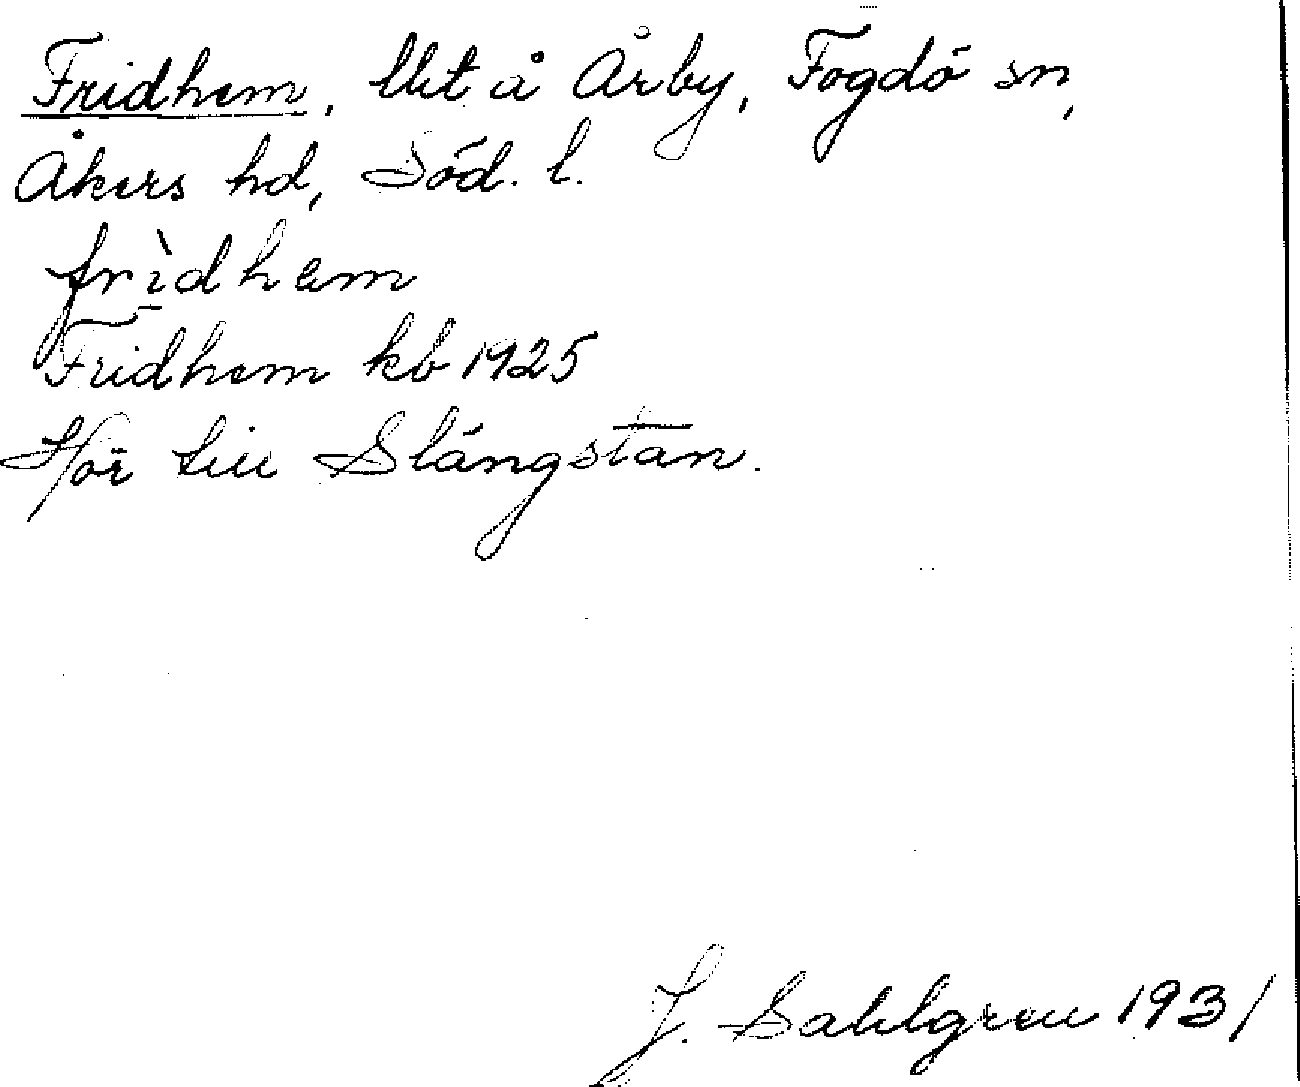 Fridhem, lht å Årby, Fogdö sn,
Åkers hd, Söd. l.
frìdhem
Fridhem kb 1925
Hör till Slängstan.
J. Sahlgren 1931